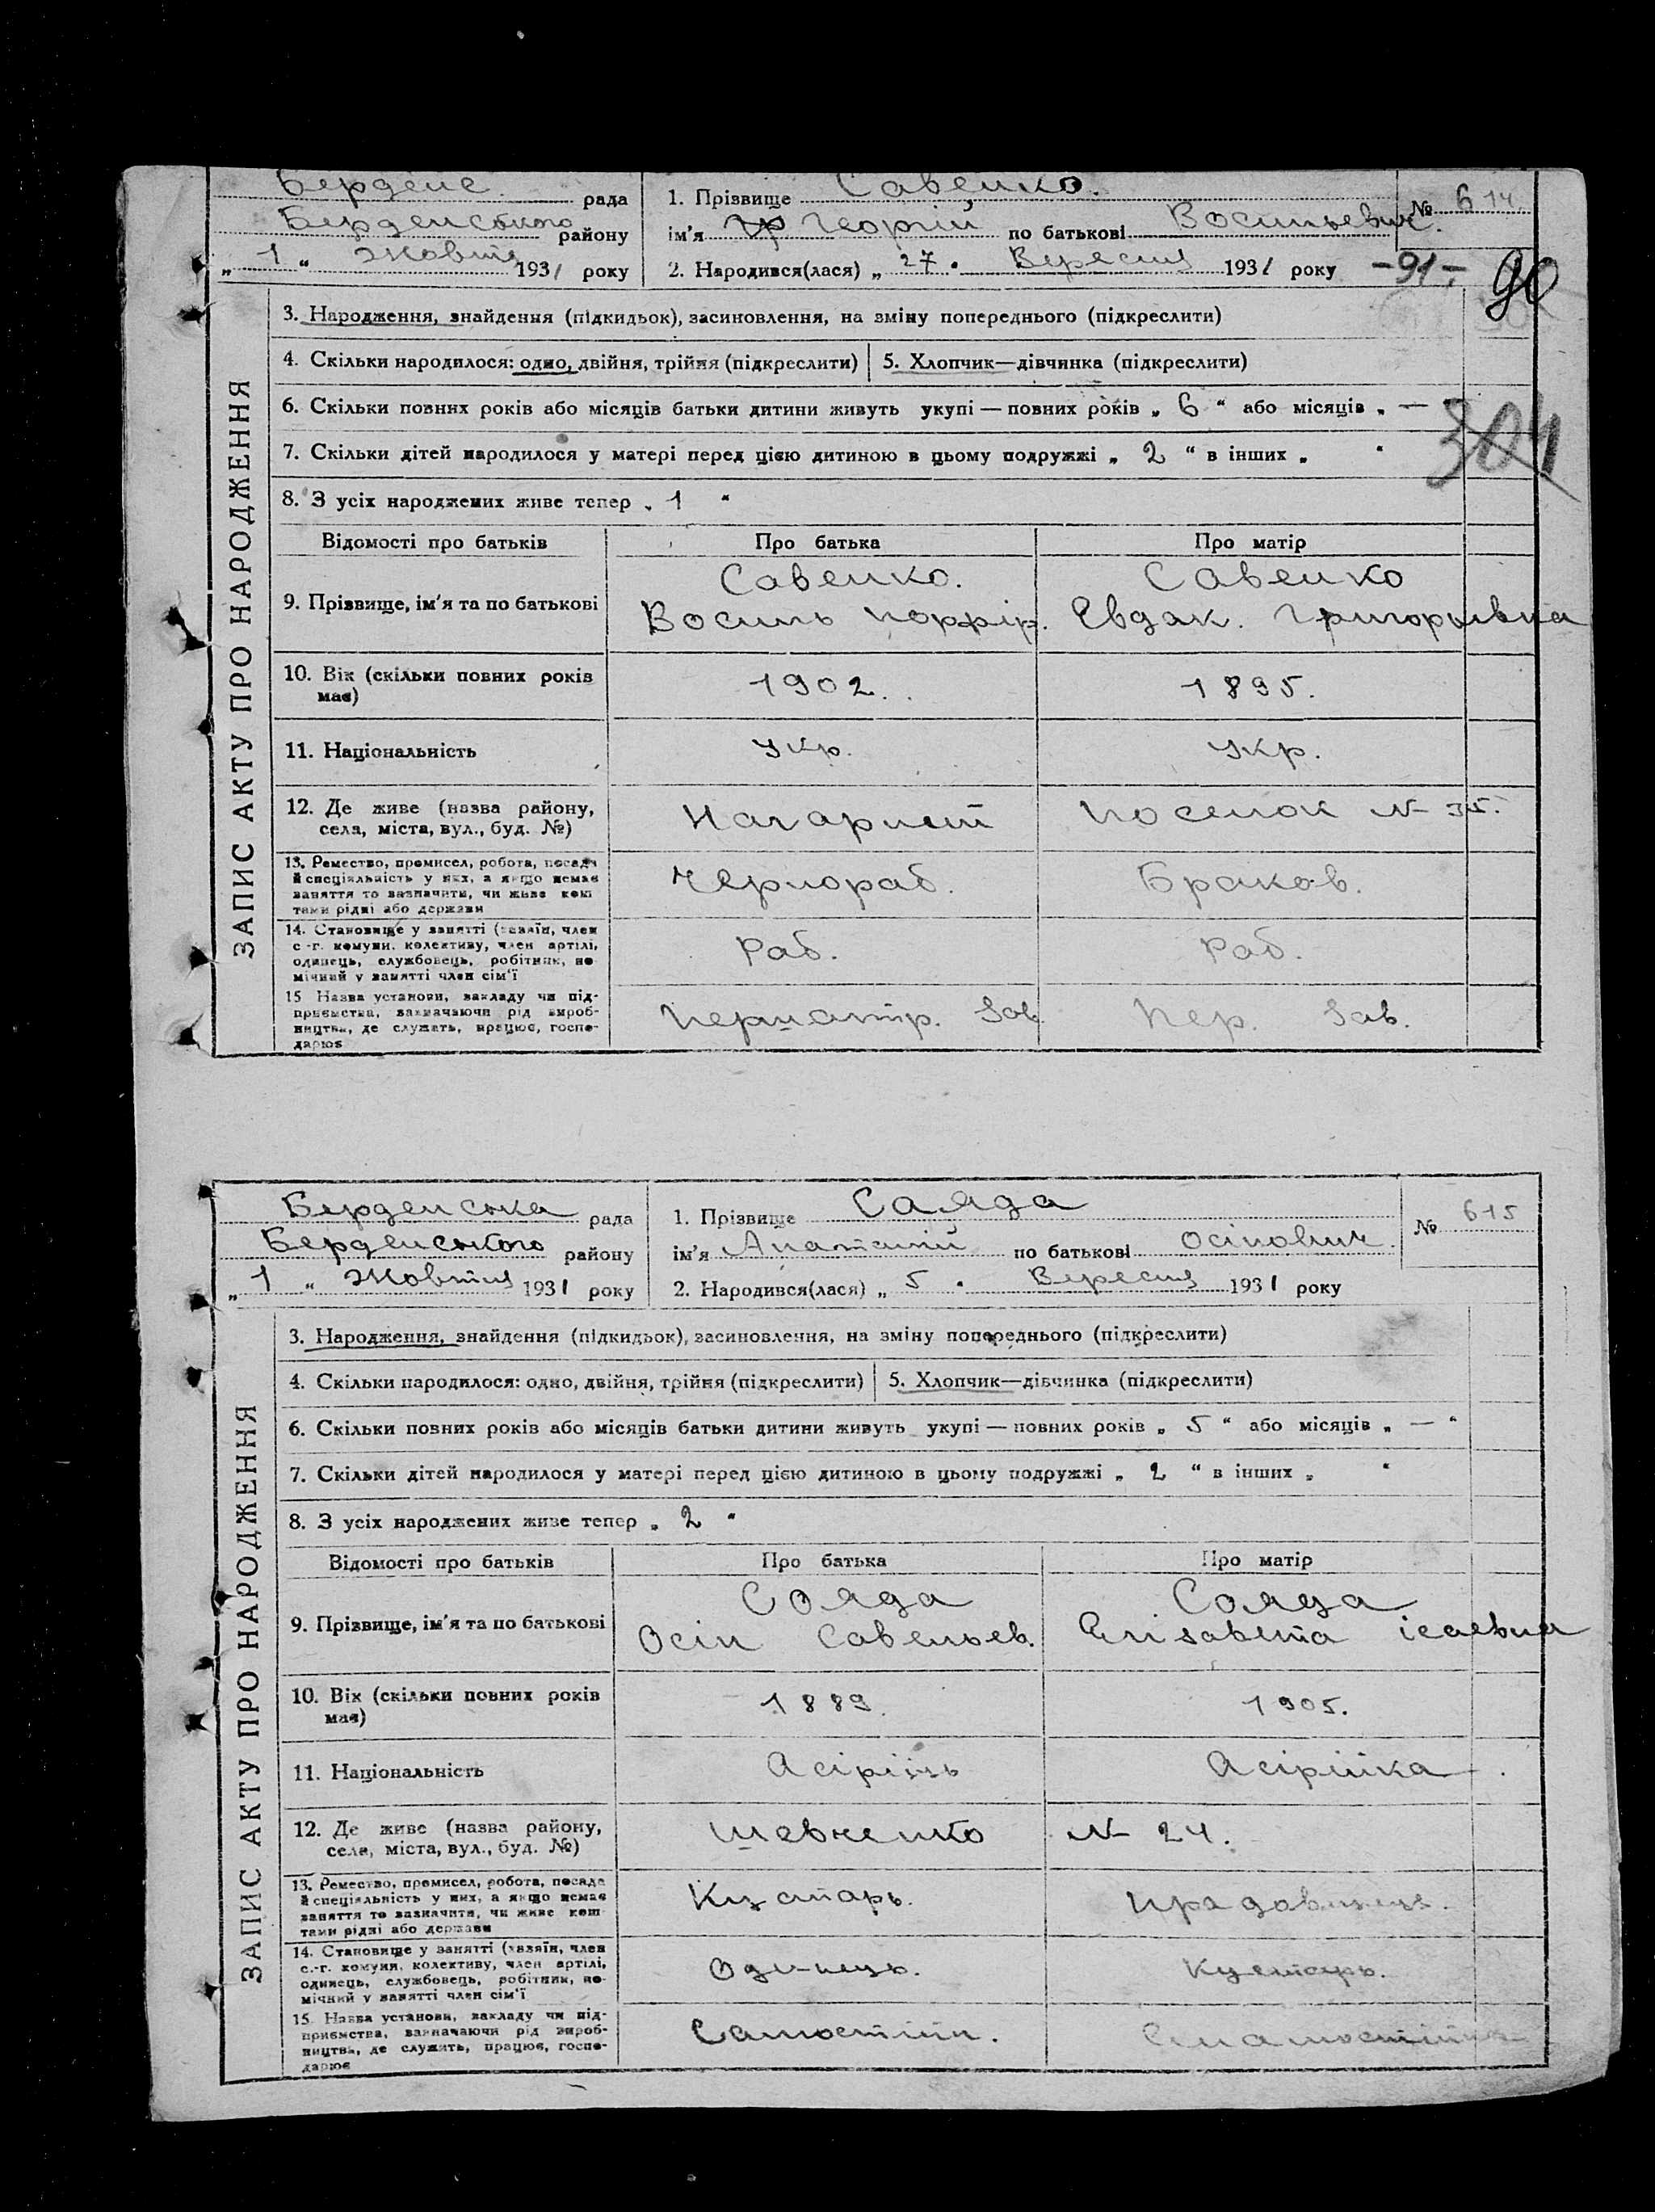 Берденс. рада
Берденського району
„ 1 “ Жовтня 1931 року
1. Прізвище Савенко.
ім'я Георгій по батькові Восильевич.
№ 614.
2. Народився(лася) „ 27 “ Вересня 1931 року
-91-
90
ЗАПИС АКТУ ПРО НАРОДЖЕННЯ
3. Народження, знайдення (підкидьок), засиновлення, на зміну попереднього (підкреслити)
4. Скільки народилося: одно, двійня, трійня (підкреслити)
5. Хлопчик—дівчинка (підкреслити)
6. Скільки повних років або місяців батьки дитини живуть укупі — повних років „ 6 “ або місяців „ — “
304
7. Скільки дітей народилося у матері перед цією дитиною в цьому подружжі „ 2 “ в інших „ “
8. З усіх народжених живе тепер „ 1 “
Відомості про батьків
Про батька
Про матір
9. Прізвище, ім'я та по батькові
Савенко.
Восиль Порфір.
Савенко
Евдок. Григорьивна
10. Вік (скільки повних років
має)
1902.
1895.
11. Національність
Укр.
Укр.
12. Де живе (назва району,
села, міста, вул., буд. №)
Посепок № 35.
13. Ремество, промисел, робота, посада
й спеціяльність у них, а якщо немає
заняття то зазначити, чи живе кош
тами рідні або держави
Чернораб.
Браков.
14. Становище у занятті (хазяїн, член
с.-г. комуни, колективу, член артілі,
одинець, службовець, робітник, по-
мічний у занятті член сім'ї
Раб.
Раб.
15. Назва установи, закладу чи під-
приємства, зазначаючи рід вироб-
ництва, де служить, працює, госпо-
дарює
Зав.
Пер. Зав.
Берденська рада
Берденського району
„ 1 “ Жовтня 1931 року
1. Прізвище Саяда
ім'я Анатолій по батькові Осіпович.
№ 615
2. Народився(лася) „ 5 “ Вересня 1931 року
ЗАПИС АКТУ ПРО НАРОДЖЕННЯ
3. Народження, знайдення (підкидьок), засиновлення, на зміну попереднього (підкреслити)
4. Скільки народилося: одно, двійня, трійня (підкреслити)
5. Хлопчик—дівчинка (підкреслити)
6. Скільки повних років або місяців батьки дитини живуть укупі — повних років „ 5 “ або місяців „ — “
7. Скільки дітей народилося у матері перед цією дитиною в цьому подружжі „ 2 “ в інших „ “
8. З усіх народжених живе тепер „ 2 “
Відомості про батьків
Про батька
Про матір
9. Прізвище, ім'я та по батькові
Сояда
Осіп Савельев.
Сояда
Елізабета ісаевна
10. Вік (скільки повних років
має)
1889.
1905.
11. Національність
Асірієць
Асірійка
12. Де живе (назва району,
села, міста, вул., буд. №)
Шевченко
№ 24.
13. Ремество, промисел, робота, посада
й спеціяльність у них, а якщо немає
заняття то зазначити, чи живе кош
тами рідні або держави
Кустарь.
14. Становище у занятті (хазяїн, член
с.-г. комуни, колективу, член артілі,
одинець, службовець, робітник, по-
мічний у занятті член сім'ї
Одинець.
Кустарь.
15. Назва установи, закладу чи під-
приємства, зазначаючи рід вироб-
ництва, де служить, працює, госпо-
дарює
Самостійн.